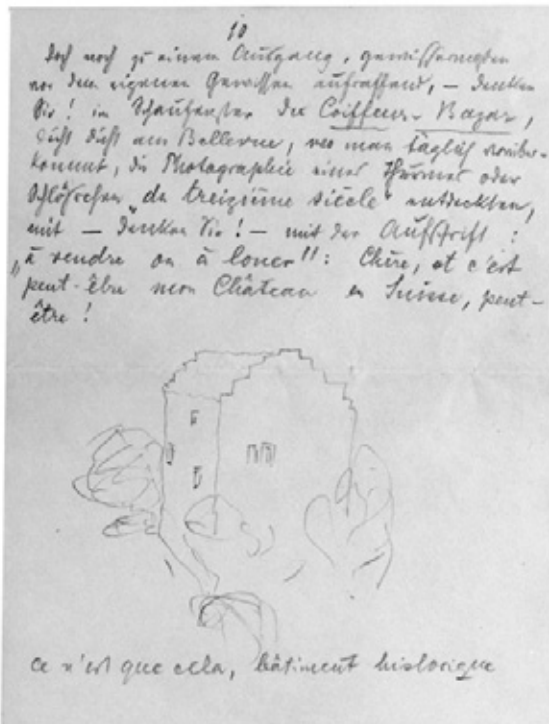 10
doch noch zu einem Ausgang, gewissermaßen
vor dem eigenen Gewissen aufraffend, — denken
Sie! im Schaufenster des Coiffeur-Bazar,
dicht am Bellevue, wo man täglich vorüber-
kommt, die Photographie eines Thurmes oder
Schlößchens „du treizième siècle“ entdeckten,
mit — denken Sie! — mit der Aufschrift:
„à vendre ou à louer“!: Chère, et c'est
peut-être mon Château en Suisse, peut-
être!
ce n'est que cela, bâtiment historique